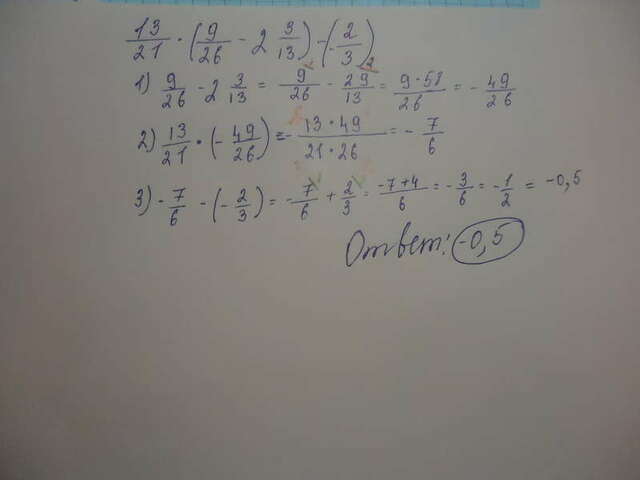 13/21 · (9/26 - 2 3/13) - (-2/3)
1) 9/26 - 2 3/13 = 9/26 - 29/13 = 9·58/26 = - 49/26
2) 13/21 · (- 49/26) = - 13·49/21·26 = - 7/6
3) - 7/6 - (- 2/3) = - 7/6 + 2/3 = -7+4/6 = - 3/6 = - 1/2 = -0,5
Ответ: -0,5